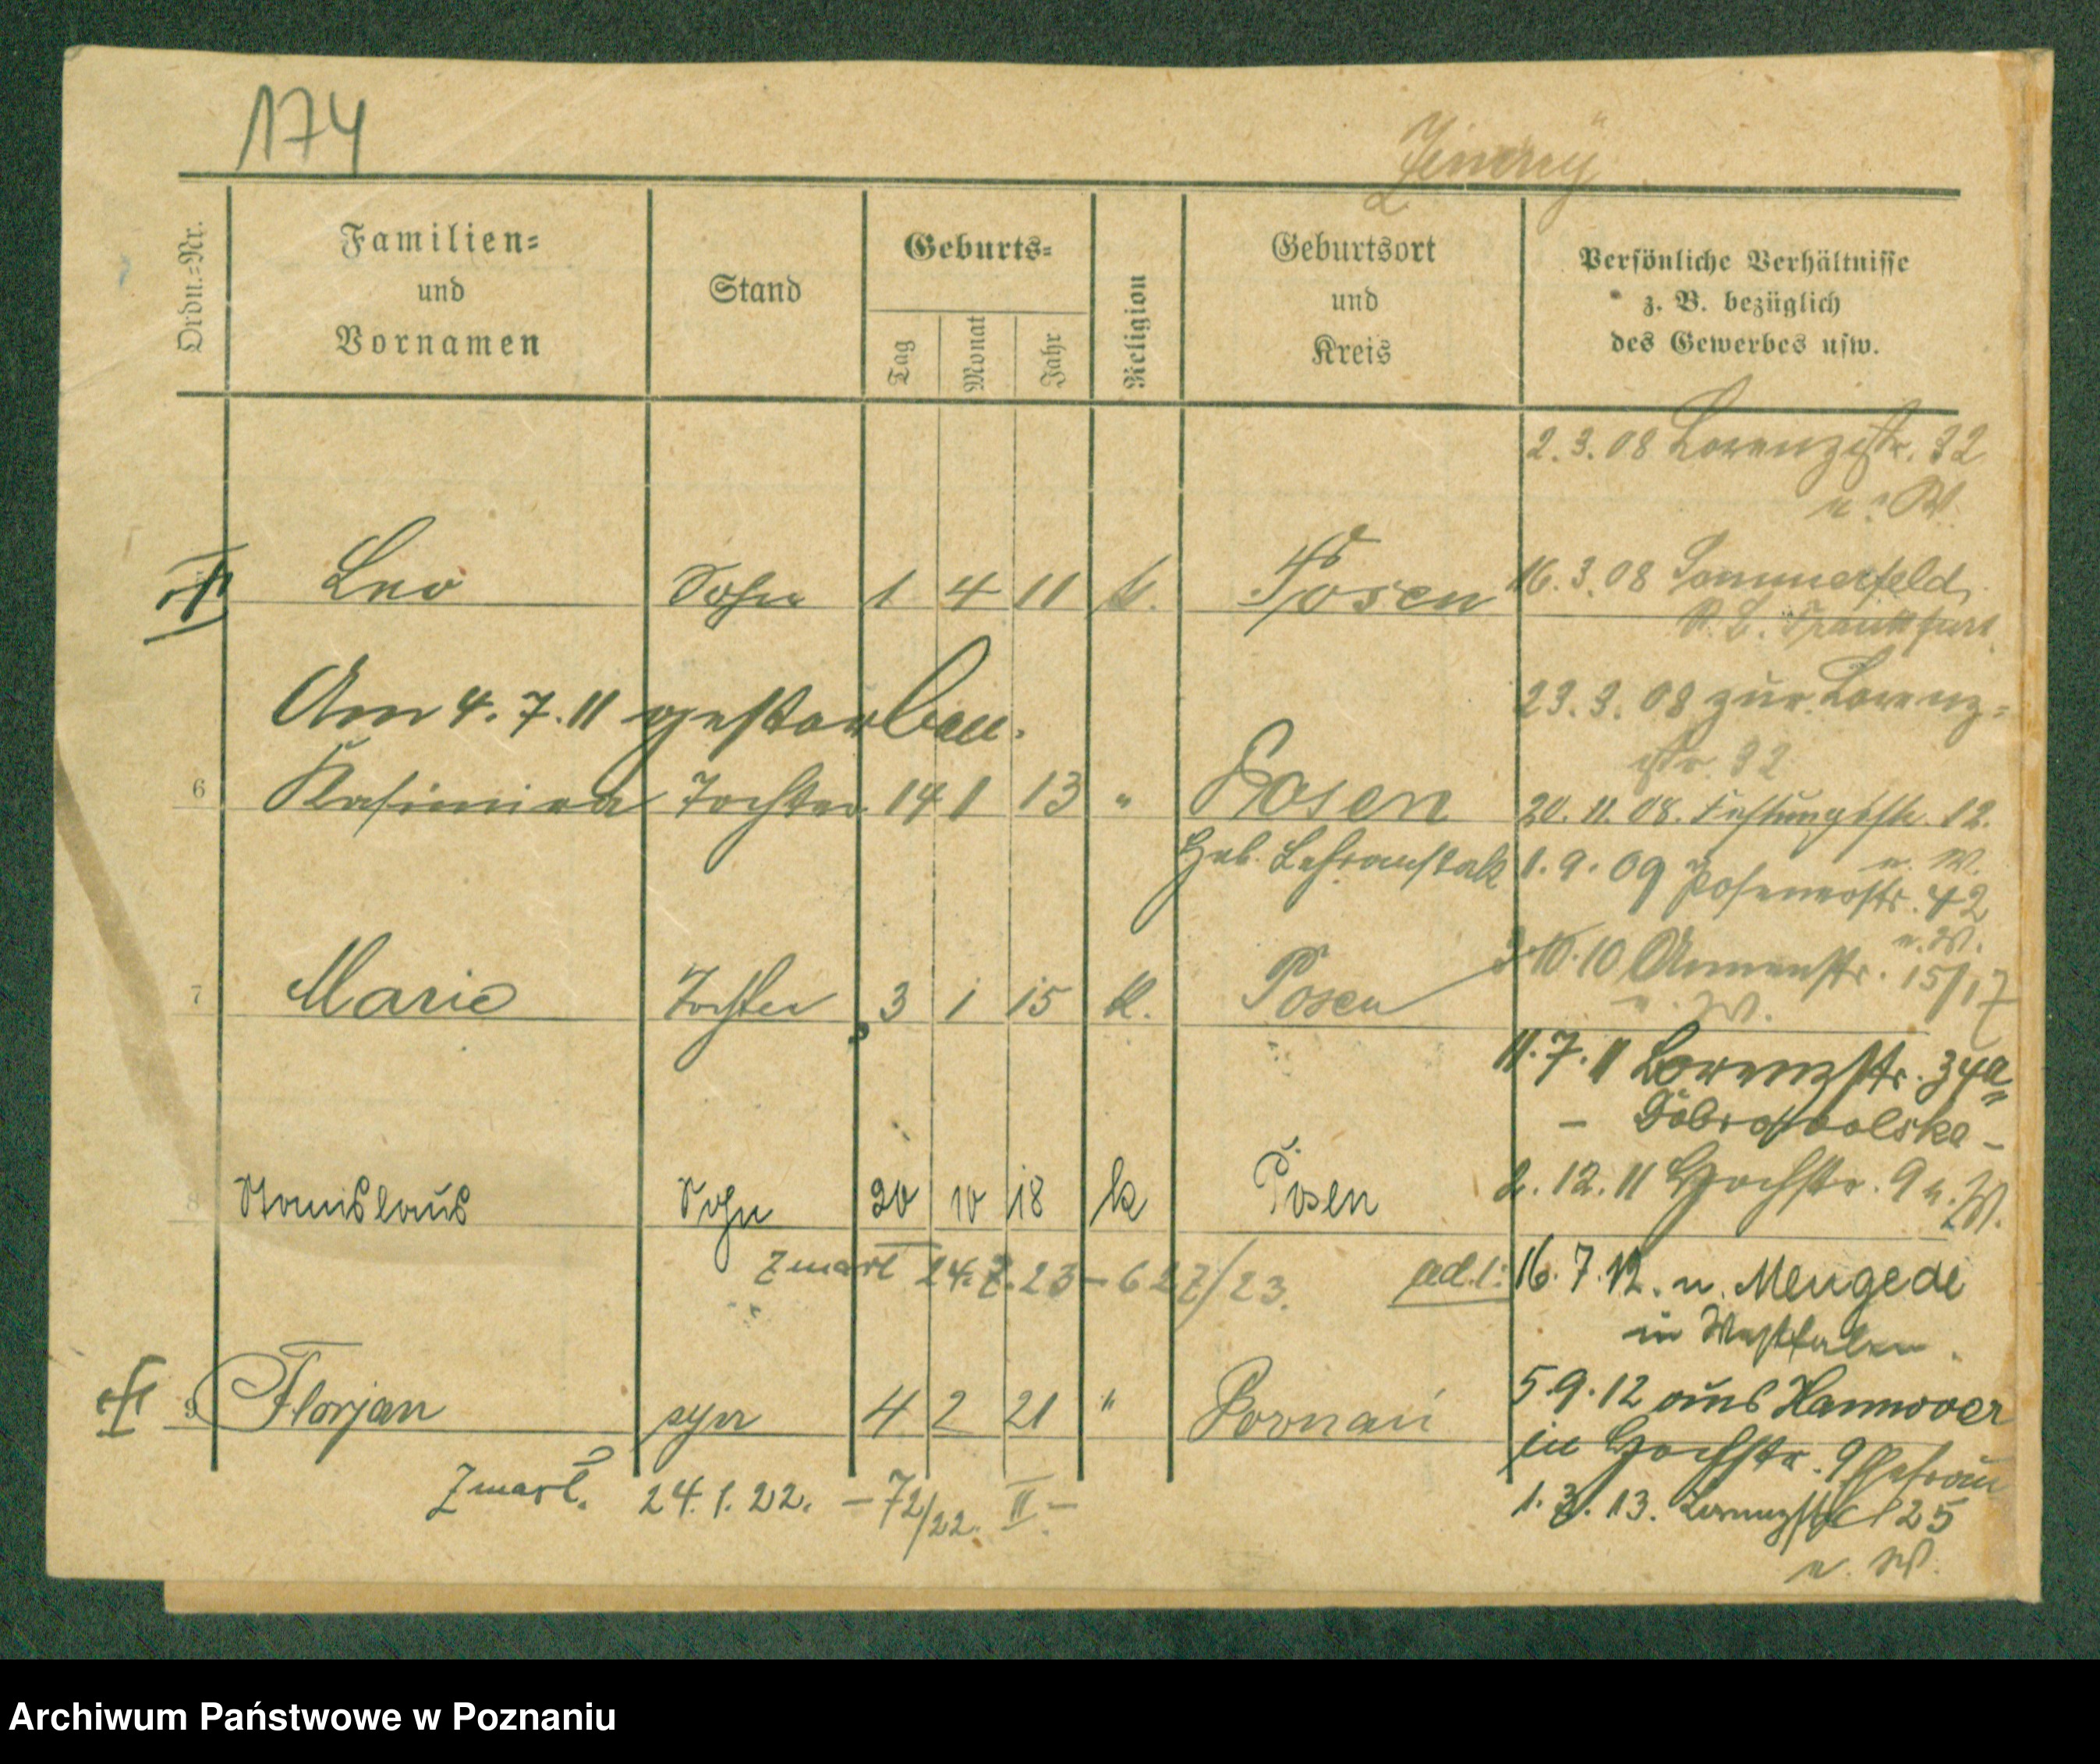 174
Ordn.-Nr.
Familien-
und
Vornamen
Stand
Geburts-
Tag
Monat
Jahr
Religion
Geburtsort
und
Kreis
Persönliche Verhältnisse
z. B. bezüglich
des Gewerbes usw.
2.3.08 Lorenzstr. 32
u. W.
Leo Sohn 1 4 11 k. Posen
16.3.08 Sommerfeld,
Frankfurt
Am 4.7.11 gestorben.
23.3.08 zur. Lorenz-
str. 32
6 Kasimira Tochter 14 1 13 " Posen
20.11.08. Festungsstr. 12.
u. W.
Geb. Lehranstalt
1.9.09 Posenerstr. 42
u. W.
7 Marie Tochter 3 1 15 k. Posen
3.10.10 Annenstr. 15/17
u. W.
11.7.11 Lorenzstr. 34a
- Dobrowolska -
8 Stanislaus Sohn 20 10 18 k Posen
2.12.11 Hochstr. 9 u. W.
Zmarł 24.7.23 - 627/23.
ad.1: 16.7.12. n. Mengede
in Westfalen.
9 Florjan syn 4 2 21 " Poznań
5.9.12 aus Hannover
in Hochstr. 9 Ehefrau
Zmarł. 24.1.22. - 72/22. II -
1.3.13. Lorenzstr. 25
u. W.
Archiwum Państwowe w Poznaniu